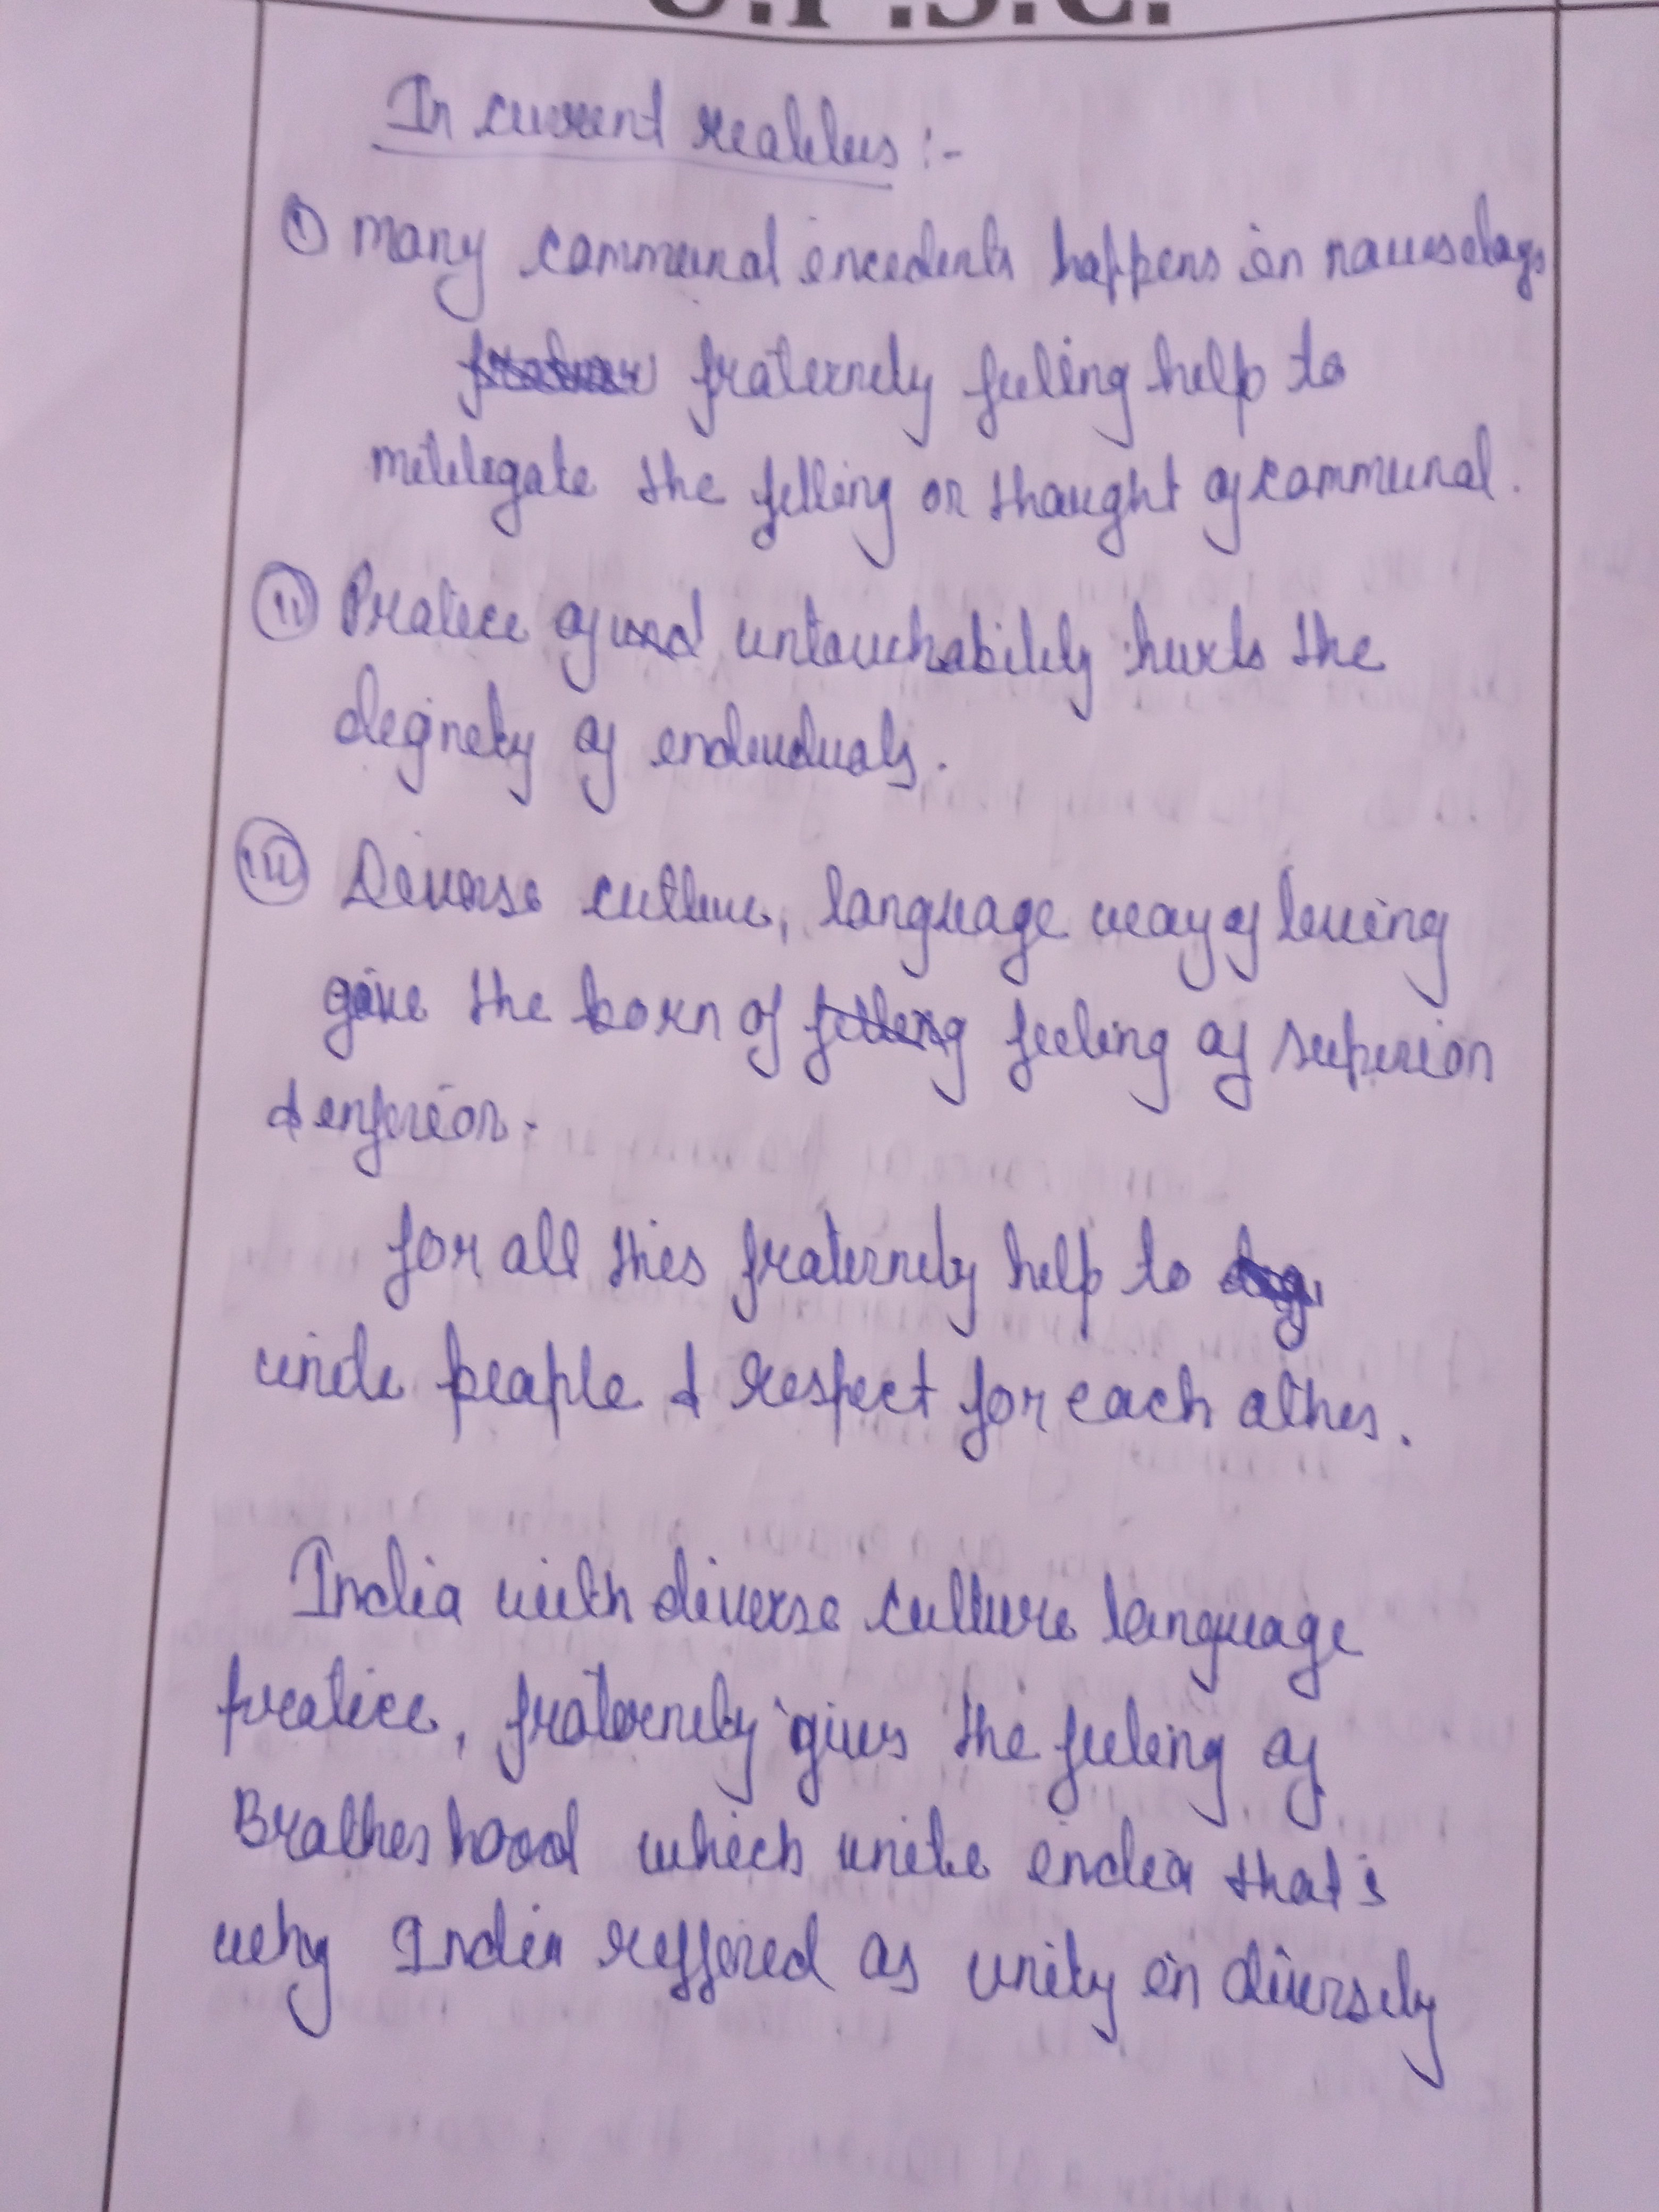 U.P.S.C.
In current realities :-
(i) many communal incidents happens in nowsdays
fraternity feeling help to
mitilegate the felling or thought of communal.
(ii) Pratice of untouchability hurts the
deginety of individuals.
(iii) Diverse cutlure, language way of living
give the born of felling feeling of superior
& inferior.
for all this fraternity help to
unite people & respect for each other.
India with diverse culture language
pratice, fraternity gives the feeling of
Brotherhood which unite india that's
why India reffered as unity in diversity